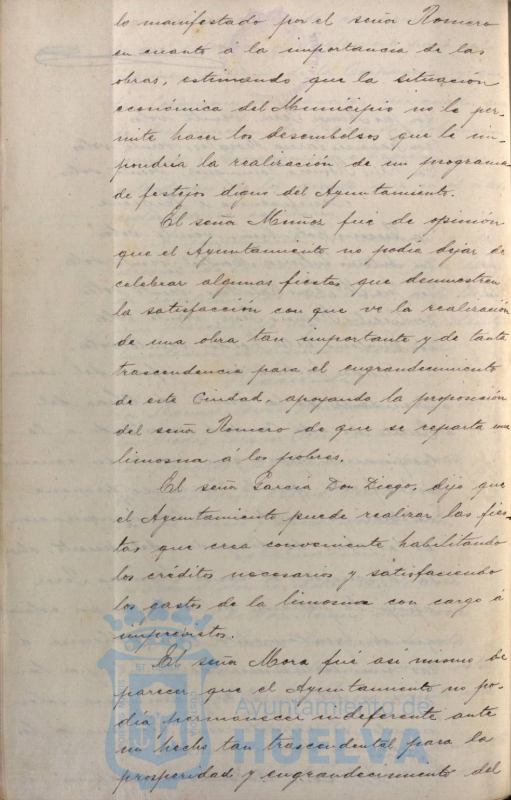 lo manifestado por el señor Romero
en cuanto á la importancia de las
obras, estimando que la situación
económica del Municipio no le per-
mite hacer los desembolsos que le im-
pondria la realización de un programa
de festejos digno del Ayuntamiento.
El señor Muñoz fué de opinión
que el Ayuntamiento no podia dejar de
celebrar algunas fiestas que demuestren
la satisfacción con que ve la realización
de una obra tan importante y de tanta
trascendencia para el engrandecimiento
de esta Ciudad, apoyando la proposición
del señor Romero de que se reparta una
limosna á los pobres.
El señor García Don Diego, dijo que
el Ayuntamiento puede realizar las fies-
tas que crea conveniente habilitando
los créditos necesarios y satisfaciendo
los gastos de la limosna con cargo á
imprevistos.
El señor Mora fué asi mismo de
parecer que el Ayuntamiento no po-
día permanecer indeferente ante
un hecho tan trascendental para la
prosperidad y engrandecimiento del
Ayuntamiento de
HUELVA